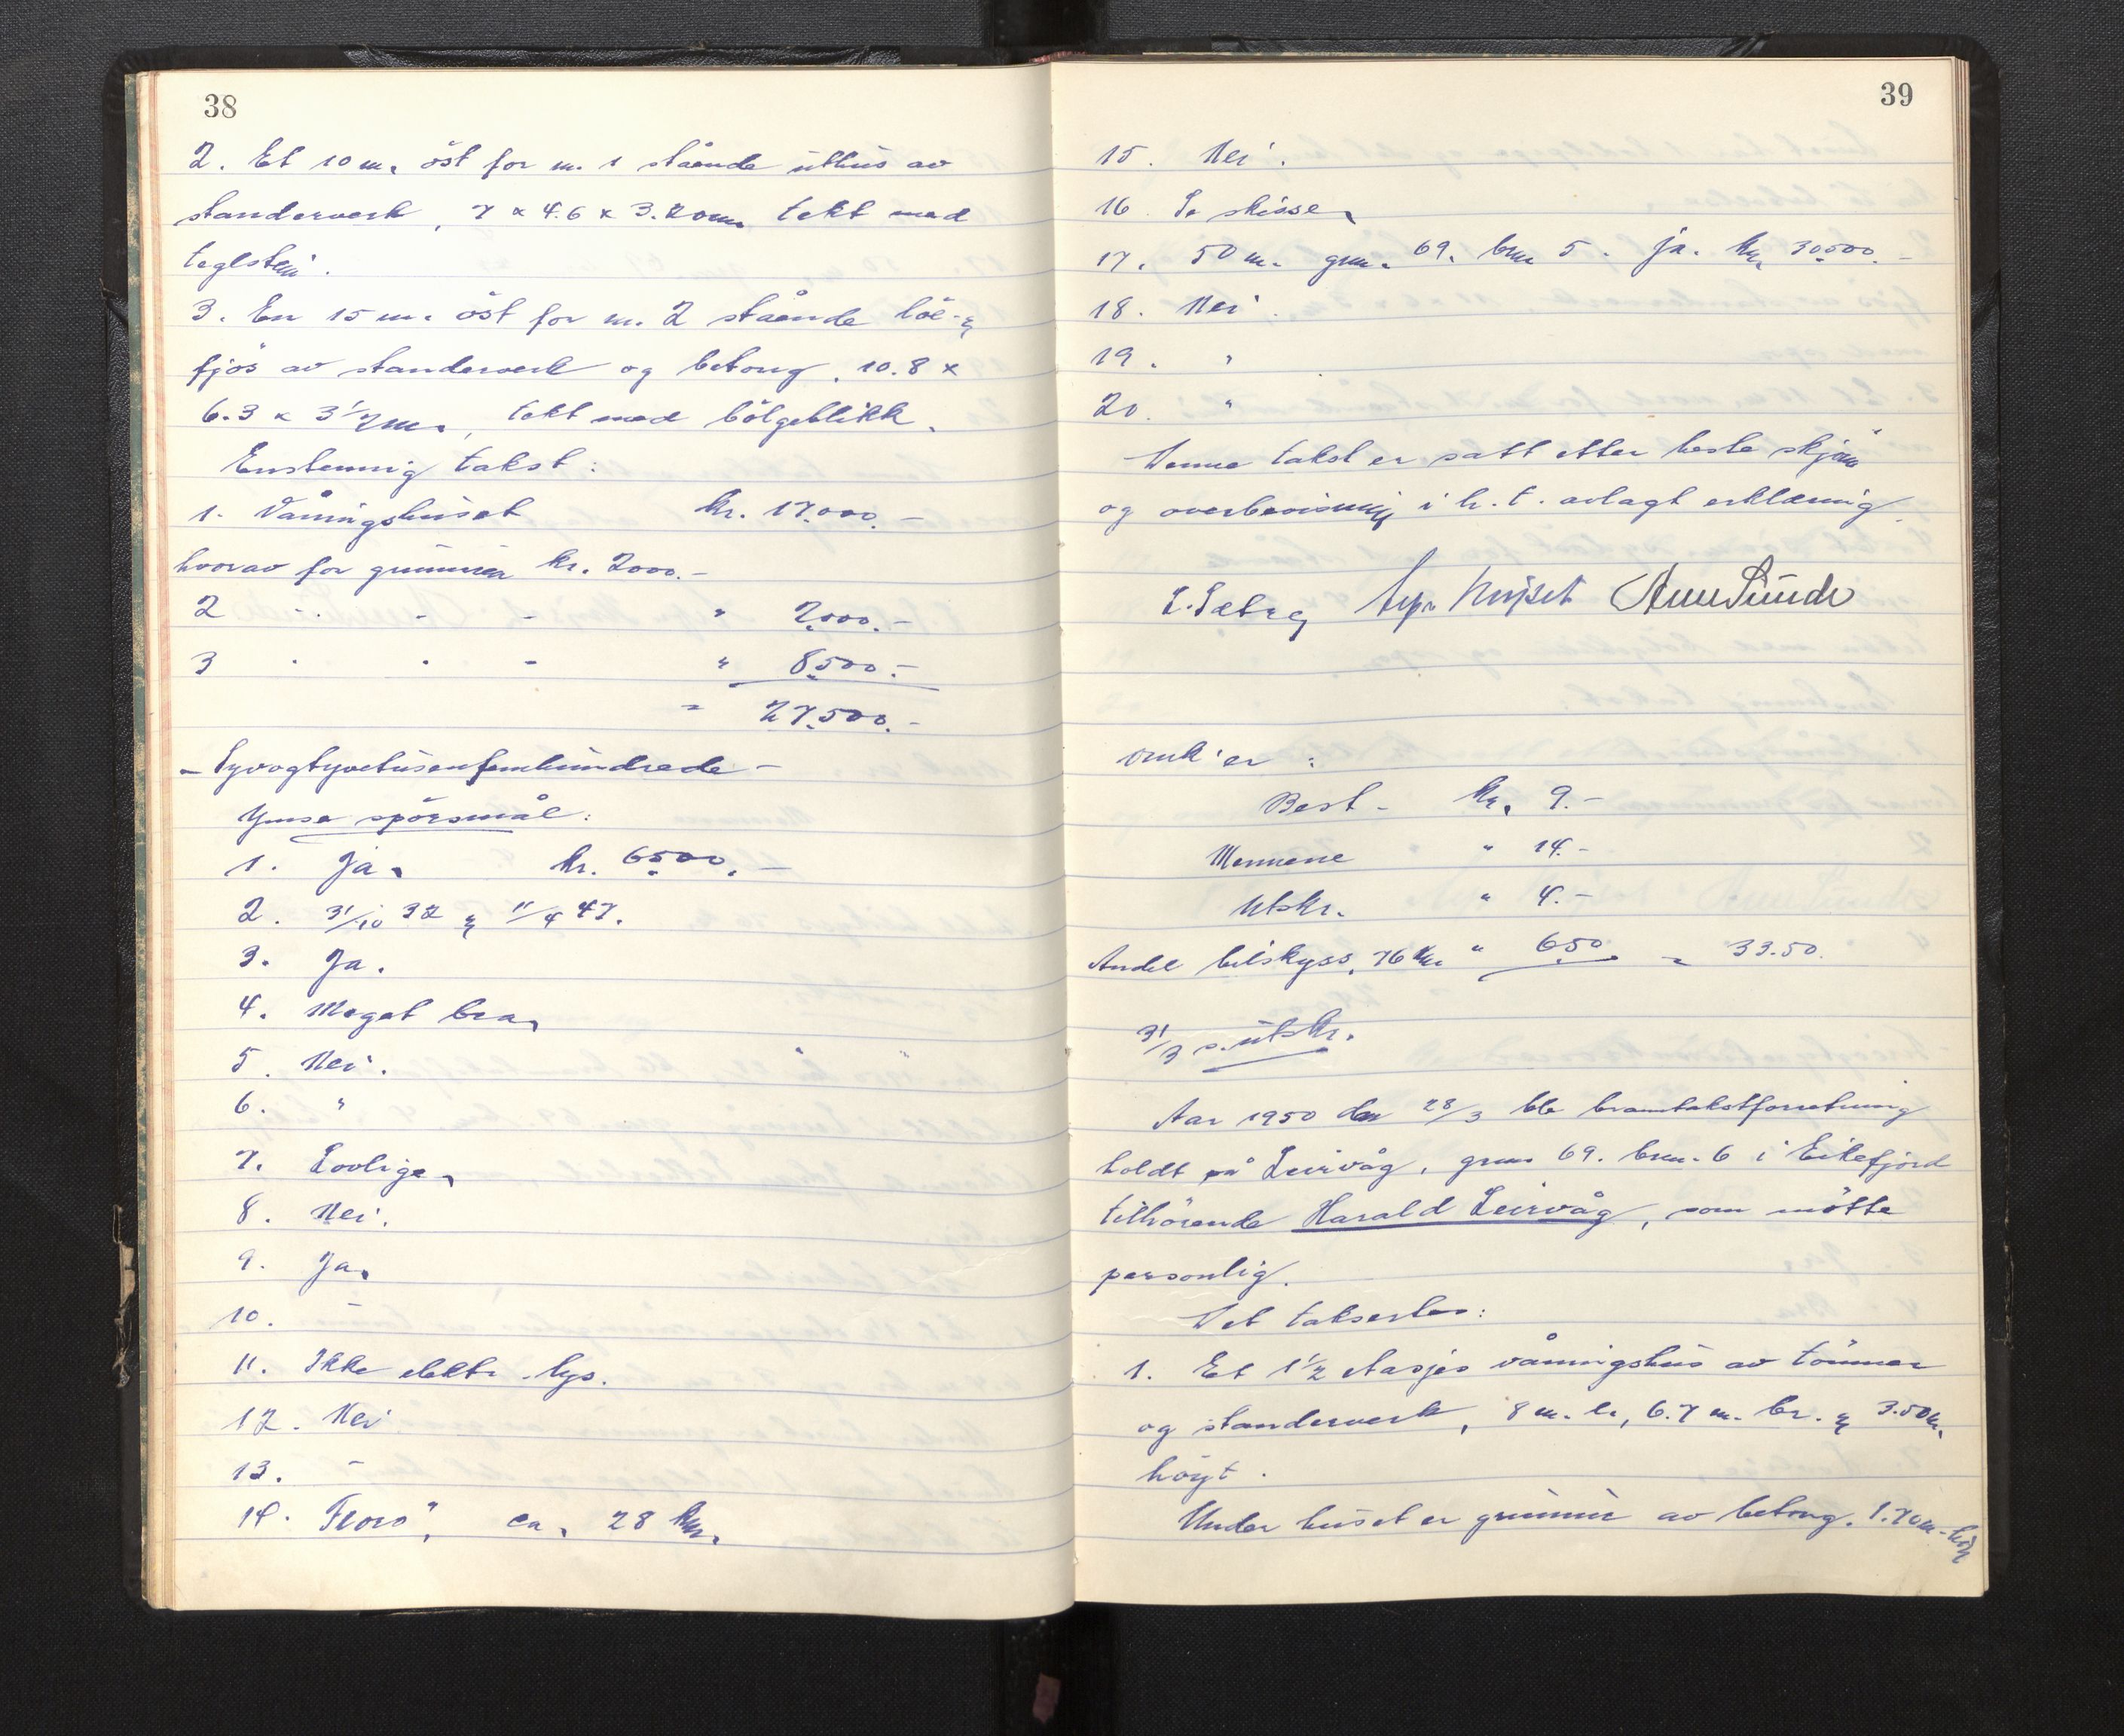 38
2. Et 10 m. öst for m. 1 stående uthus av
standerverk, 7 x 4.6 x 3.20 m. tekt med
teglstein.
3. En 15 m. öst for m. 2 stående löe- &
fjös av standerverk og betong, 10.8 x
6.3 x 3 1/2 m., tekt med bölgeblikk.
Enstemmig takst:
1. Våningshuset kr. 17.000.-
hvorav for grunnmur kr. 2000.-
2 " - - " 2.000.-
3 " " - " 8.500.-
= 27.500.-
- Syvogtyvetusenfemhundrede -
Ymse spörsmål:
1. Ja. kr. 6500.-
2. 31/10 32 & 11/4 47.
3. Ja.
4. Meget bra.
5. Nei.
6. "
7. Lovlige.
8. Nei.
9. Ja.
10. -
11. Ikke elektr. lys.
12. Nei
13. -
14. "Florö", ca. 28 km.
39
15. Nei.
16 Se skisse.
17. 50 m. gnr. 69. bnr. 5. ja. kr. 30.500.-
18. Nei.
19. "
20. "
Denne takst er satt etter beste skjön
og overbevisning i h. t. avlagt erklæring.
Omk'er:
Best- kr. 9.-
Mennene " 14.-
Utskr. " 4.-
Andel bilskyss, 76 km " 6.50 = 33.50.
31/3 s. utskr.
Aar 1950 den 28/3 ble branntakstforretning
holdt på Leirvåg, gnr. 69. bnr. 6 i Eikefjord
tilhörende Harald Leirvåg, som mötte
personlig.
Det takseres:
1. Et 1 1/2 etasjes våningshus av tömmer
og standerverk, 8 m. l., 6.7 m. br. & 3.50 m.
höyt.
Under huset er grunnmur av betong. 1.70 m. höy